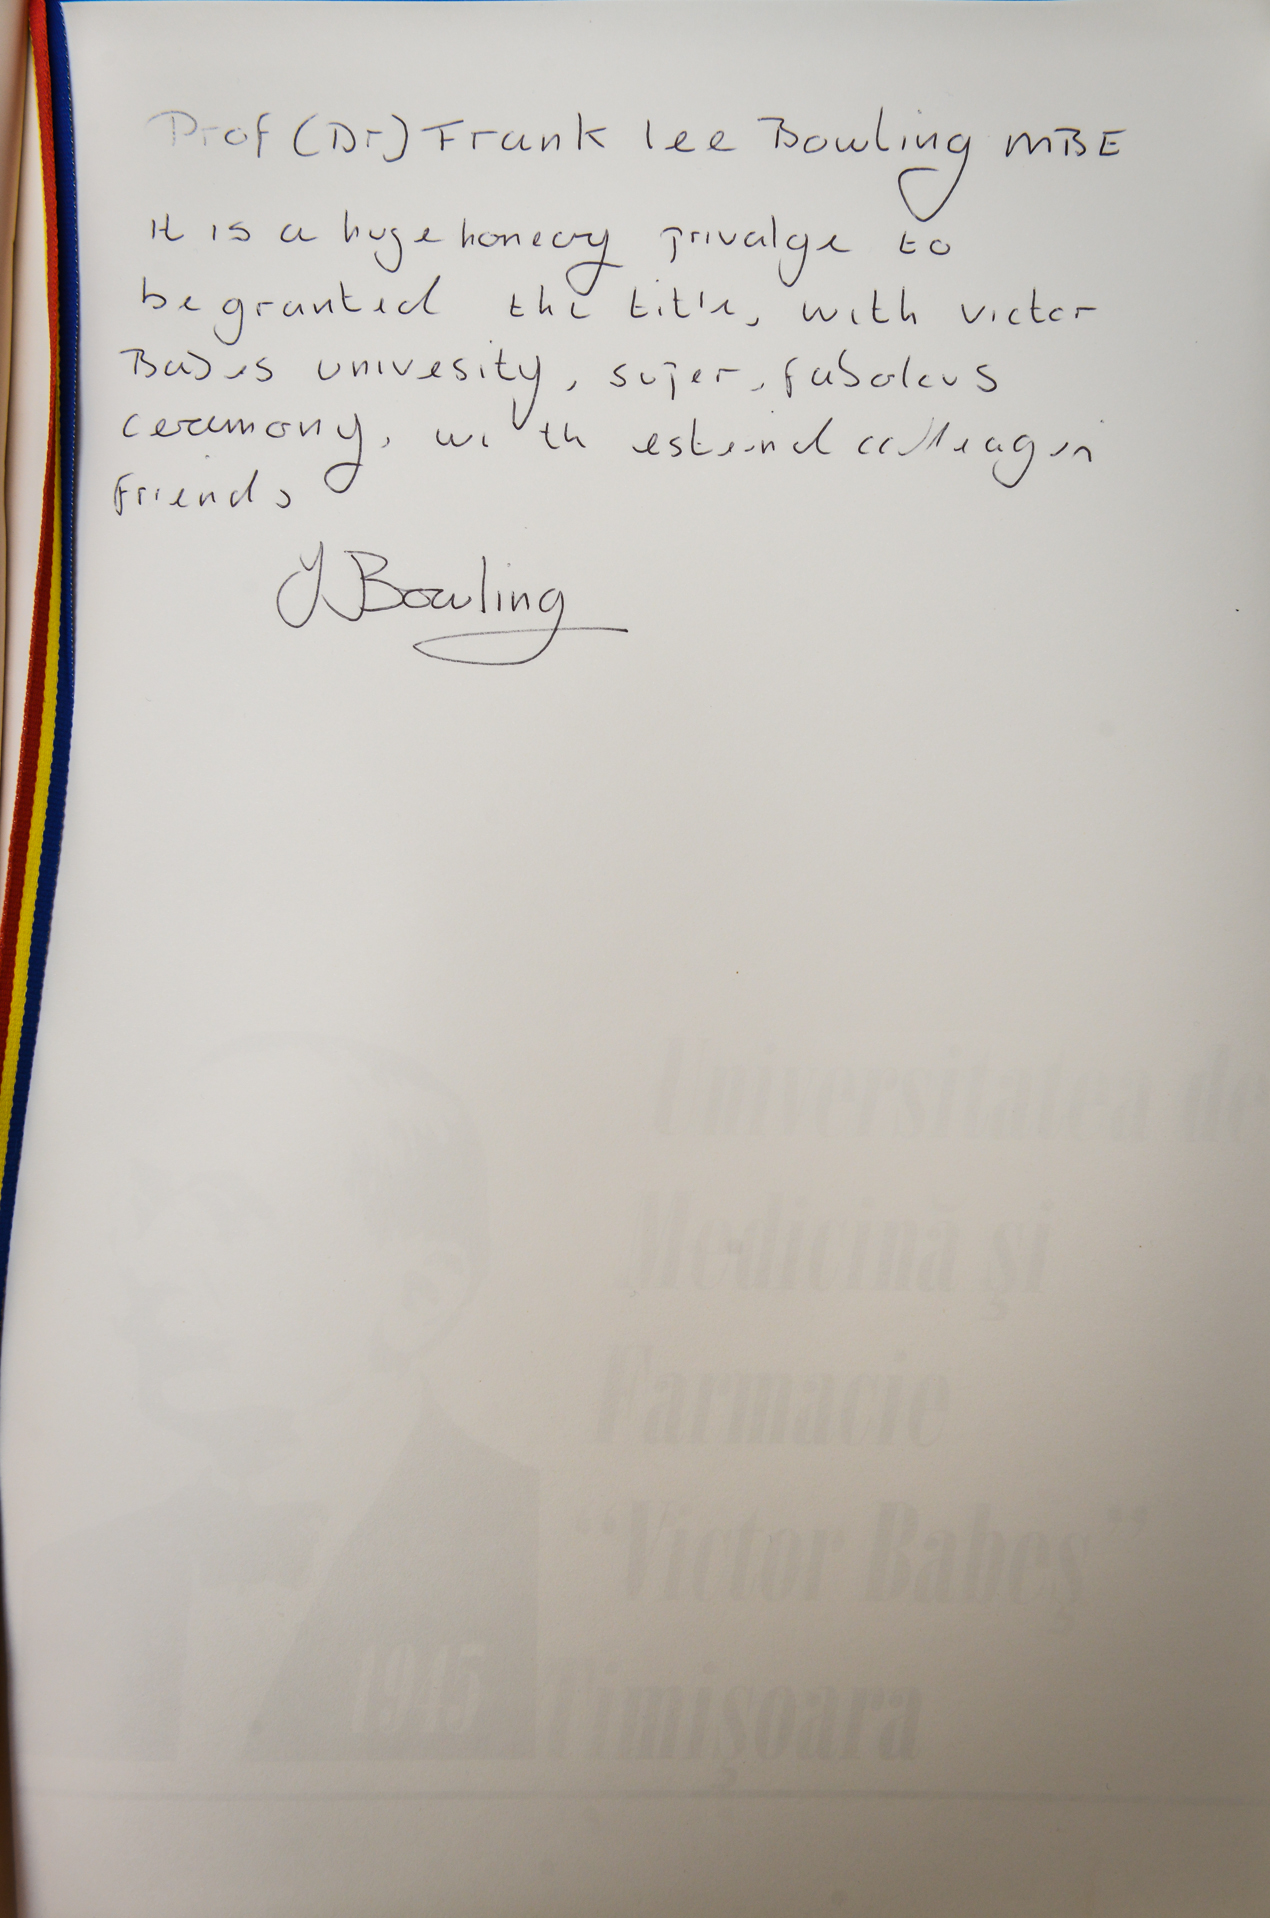 Prof (Dr) Frank Lee Bowling MBE
It is a huge honeary privalge to
be granted the title, with victor
Babes univesity, super, fabolous
ceremony, with
friends
Bowling
Universitatea de
Medicină şi
Farmacie
“Victor Babeş”
1945 Timişoara